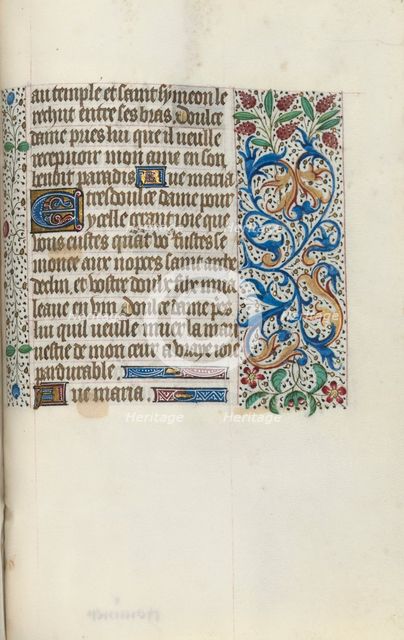 au temple et saint symeon le
rechut entre ses bras. Doulce
dame pries lui que il vueille
recepuoir mon ame en son
paradis Aue maria
E tresdoulce dame pour
ycelle grant ioie que
vous eustes quāt vo9 fustes se
monce aux nopces saint arche
declin et vostre doulx
eaue en vin doulce dame pri
lui quil vueille muer la mau
uestie de mon cuer a vraye ioy
pardurable.
Aue maria.
Heritage
Heritage
Heritage